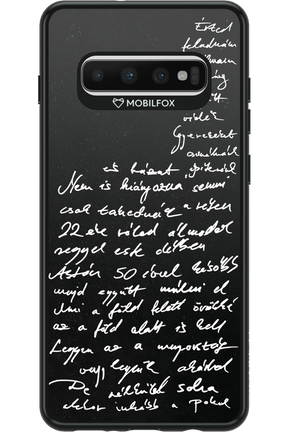 MOBILFOX
Érted
feladnám
vidék
Gyerekeint
csinálnék
és házat építenék
Nem is hiányozna semmi
csak takarónak a reggel
22 éve rólad álmodok
reggel este délben
Aztán 50 évvel később
majd együtt múlni el
Mint a föld felett örökké
az a föld alatt is kell
Legyen az a mennyország
vagy legyünk akárhol
De nélküled soha
akkor inkább a Pokol